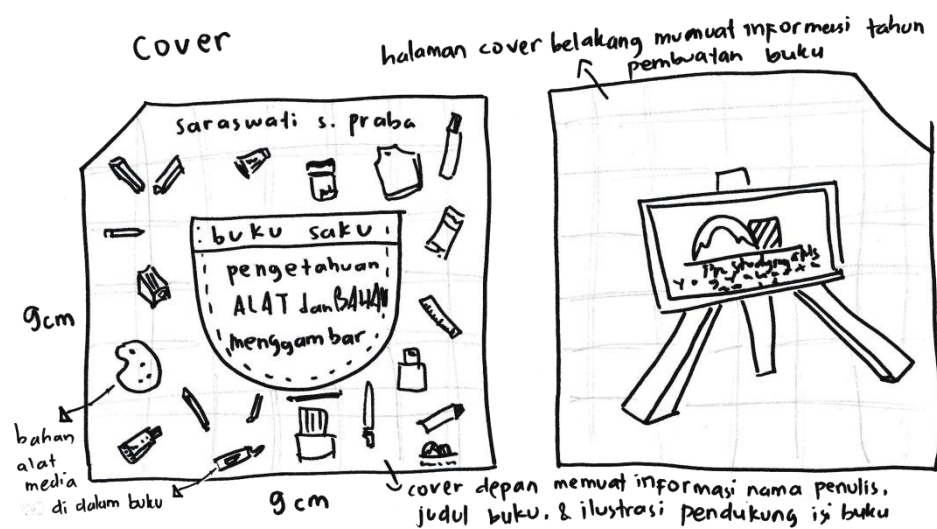 cover
halaman cover belakang mumuat informasi tahun
pembuatan buku
saraswati s. praba
buku saku
pengetahuan
ALAT dan BAHAN
menggambar
9cm
9 cm
bahan
alat
media
di dalam buku
cover depan memuat informasi nama penulis,
judul buku, & ilustrasi pendukung isi buku